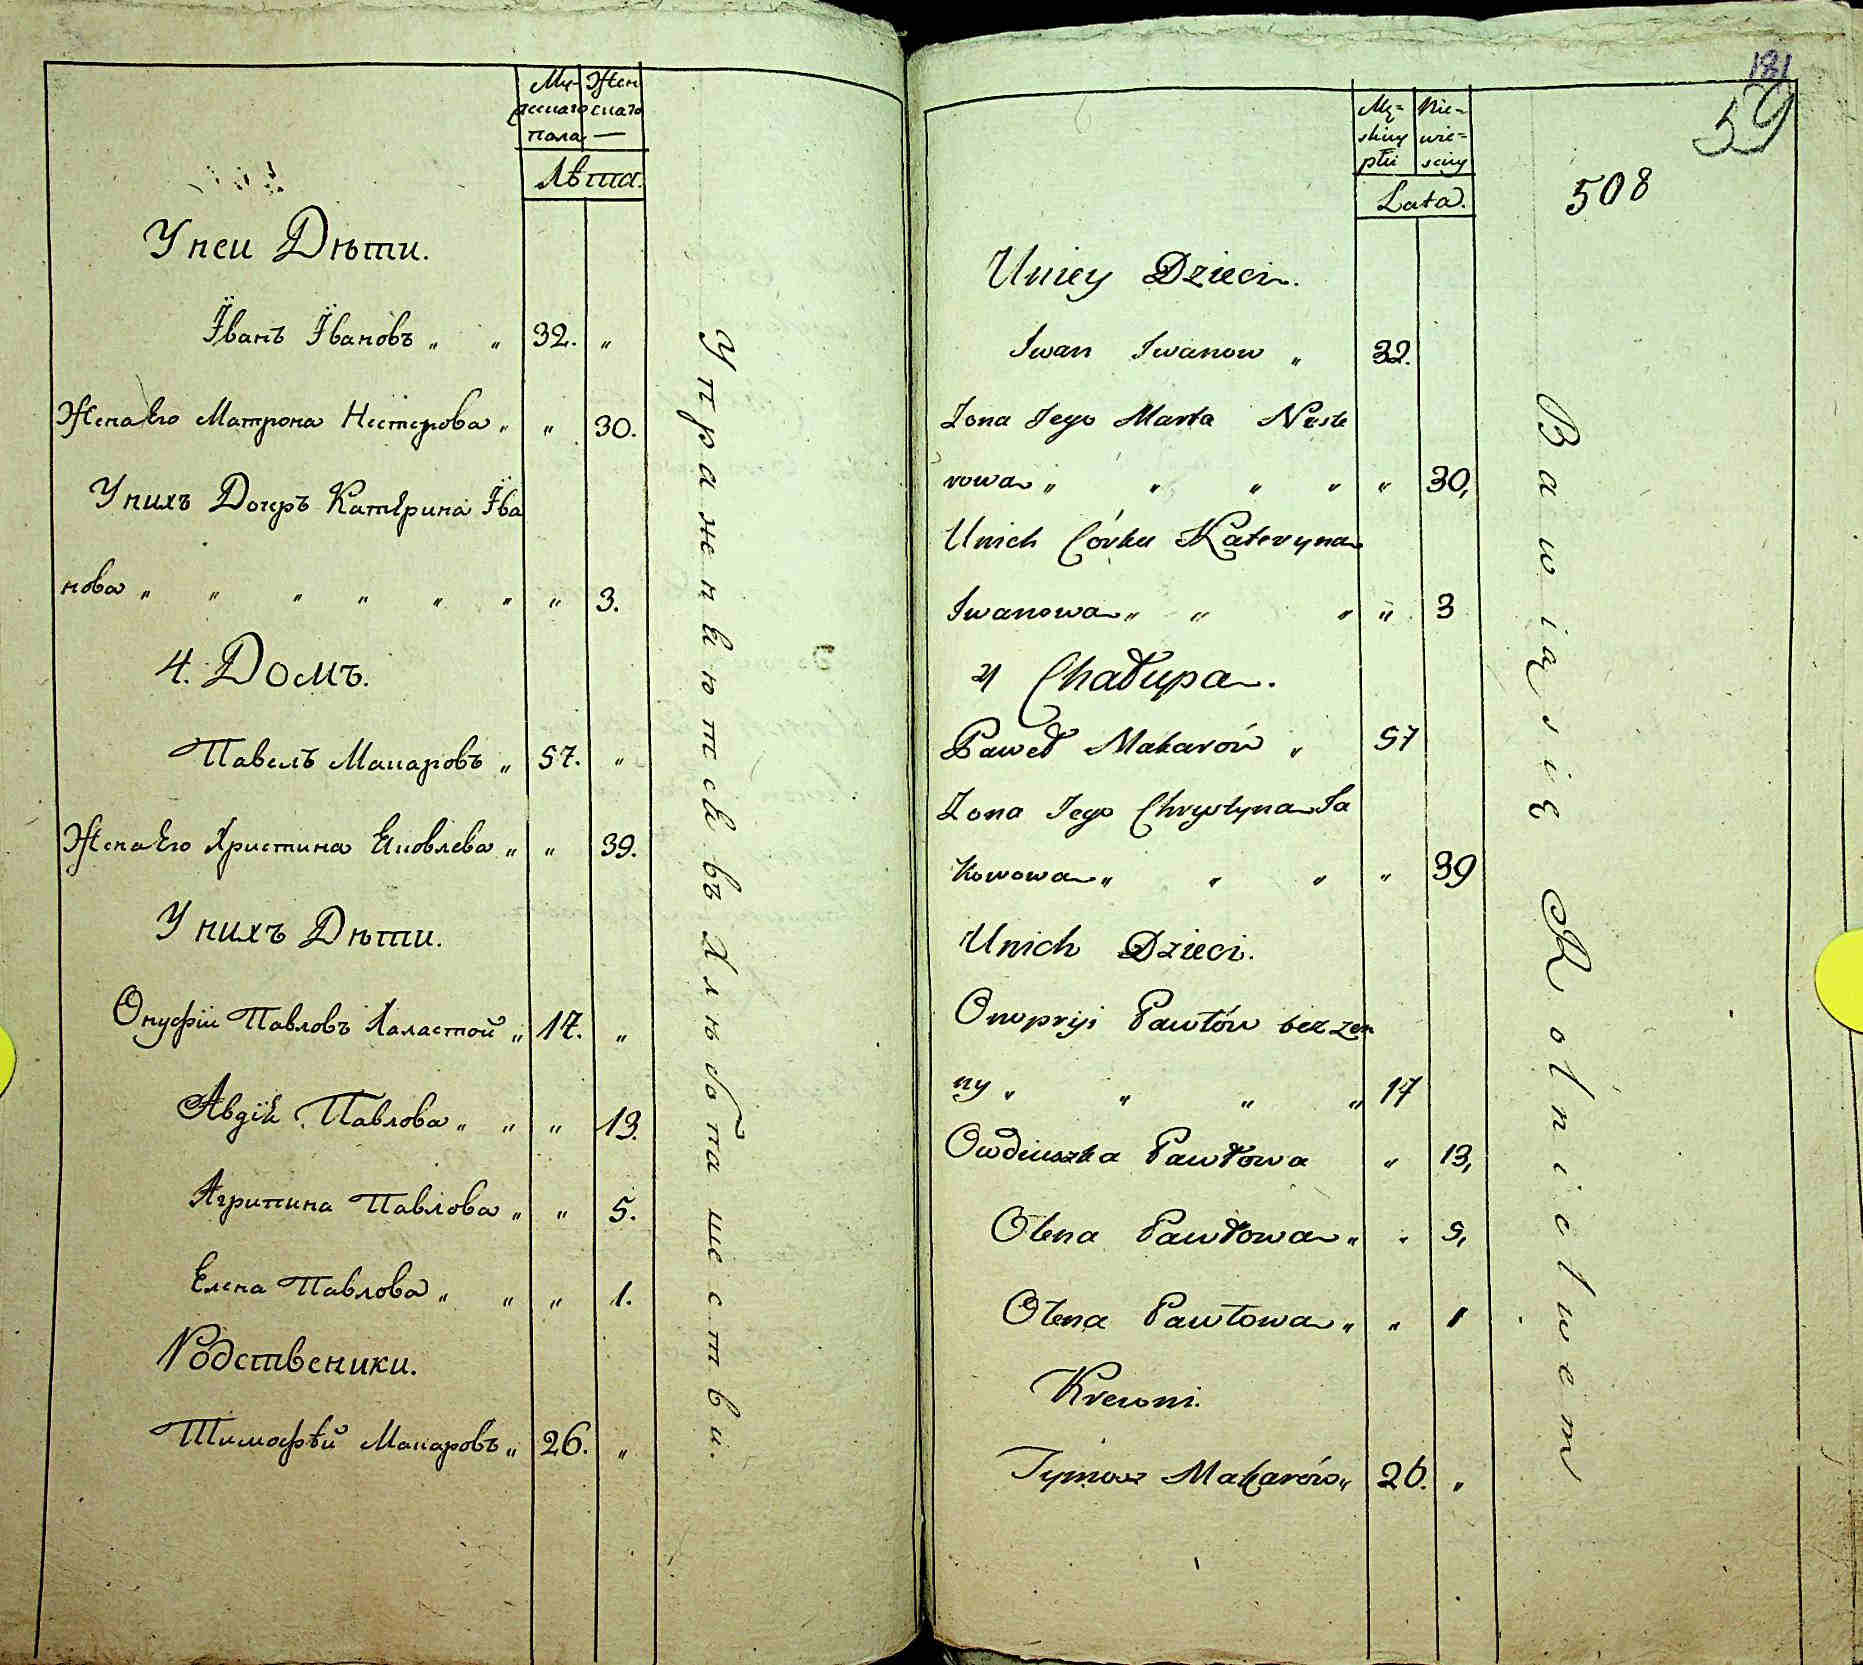 Му- Жен
жескаго скаго
пола —
Лѣта.
У неи Дѣти.
Їванъ Ївановъ „ „ 32. „
Жена Его Матрона Нестерова „ „ 30.
У нихъ Дочеръ Катерина Їва
нова „ „ „ „ „ „ „ 3.
4. Домъ.
Павелъ Макаровъ „ 57. „
Жена Его Христина Яковлева „ „ 39.
У нихъ Дѣти.
Онуфрїи Павловъ Халастой „ 17. „
Авдїя Павлова „ „ „ 13.
Агрипина Павлова „ „ 5.
Елена Павлова „ „ „ 1.
Родственики.
Тимофѣй Макаровъ „ 26. „
Упражняются въ Хлѣбопашестви.
181
59
508
Mę- Nie-
skiey wie-
płci sciey
Lata.
Uniey Dzieci.
Iwan Iwanow „ 32.
Zona Jego Marta Neste
rowa „ „ „ „ „ 30,
Unich Córka Kateryna
Iwanowa „ „ „ „ 3
4 Chałupa.
Paweł Makarów „ 57
Zona Jego Chrystyna Ja
kowowa „ „ „ „ 39
Unich Dzieci.
Onopryi Pawłów bez zon
ny „ „ „ „ 17
Owdiuszka Pawłowa „ 13,
Olena Pawłowa „ „ 5,
Olena Pawłowa „ „ 1
Krewni.
Tymosz Makarów „ 26. „
Bawią się Rolnictwem